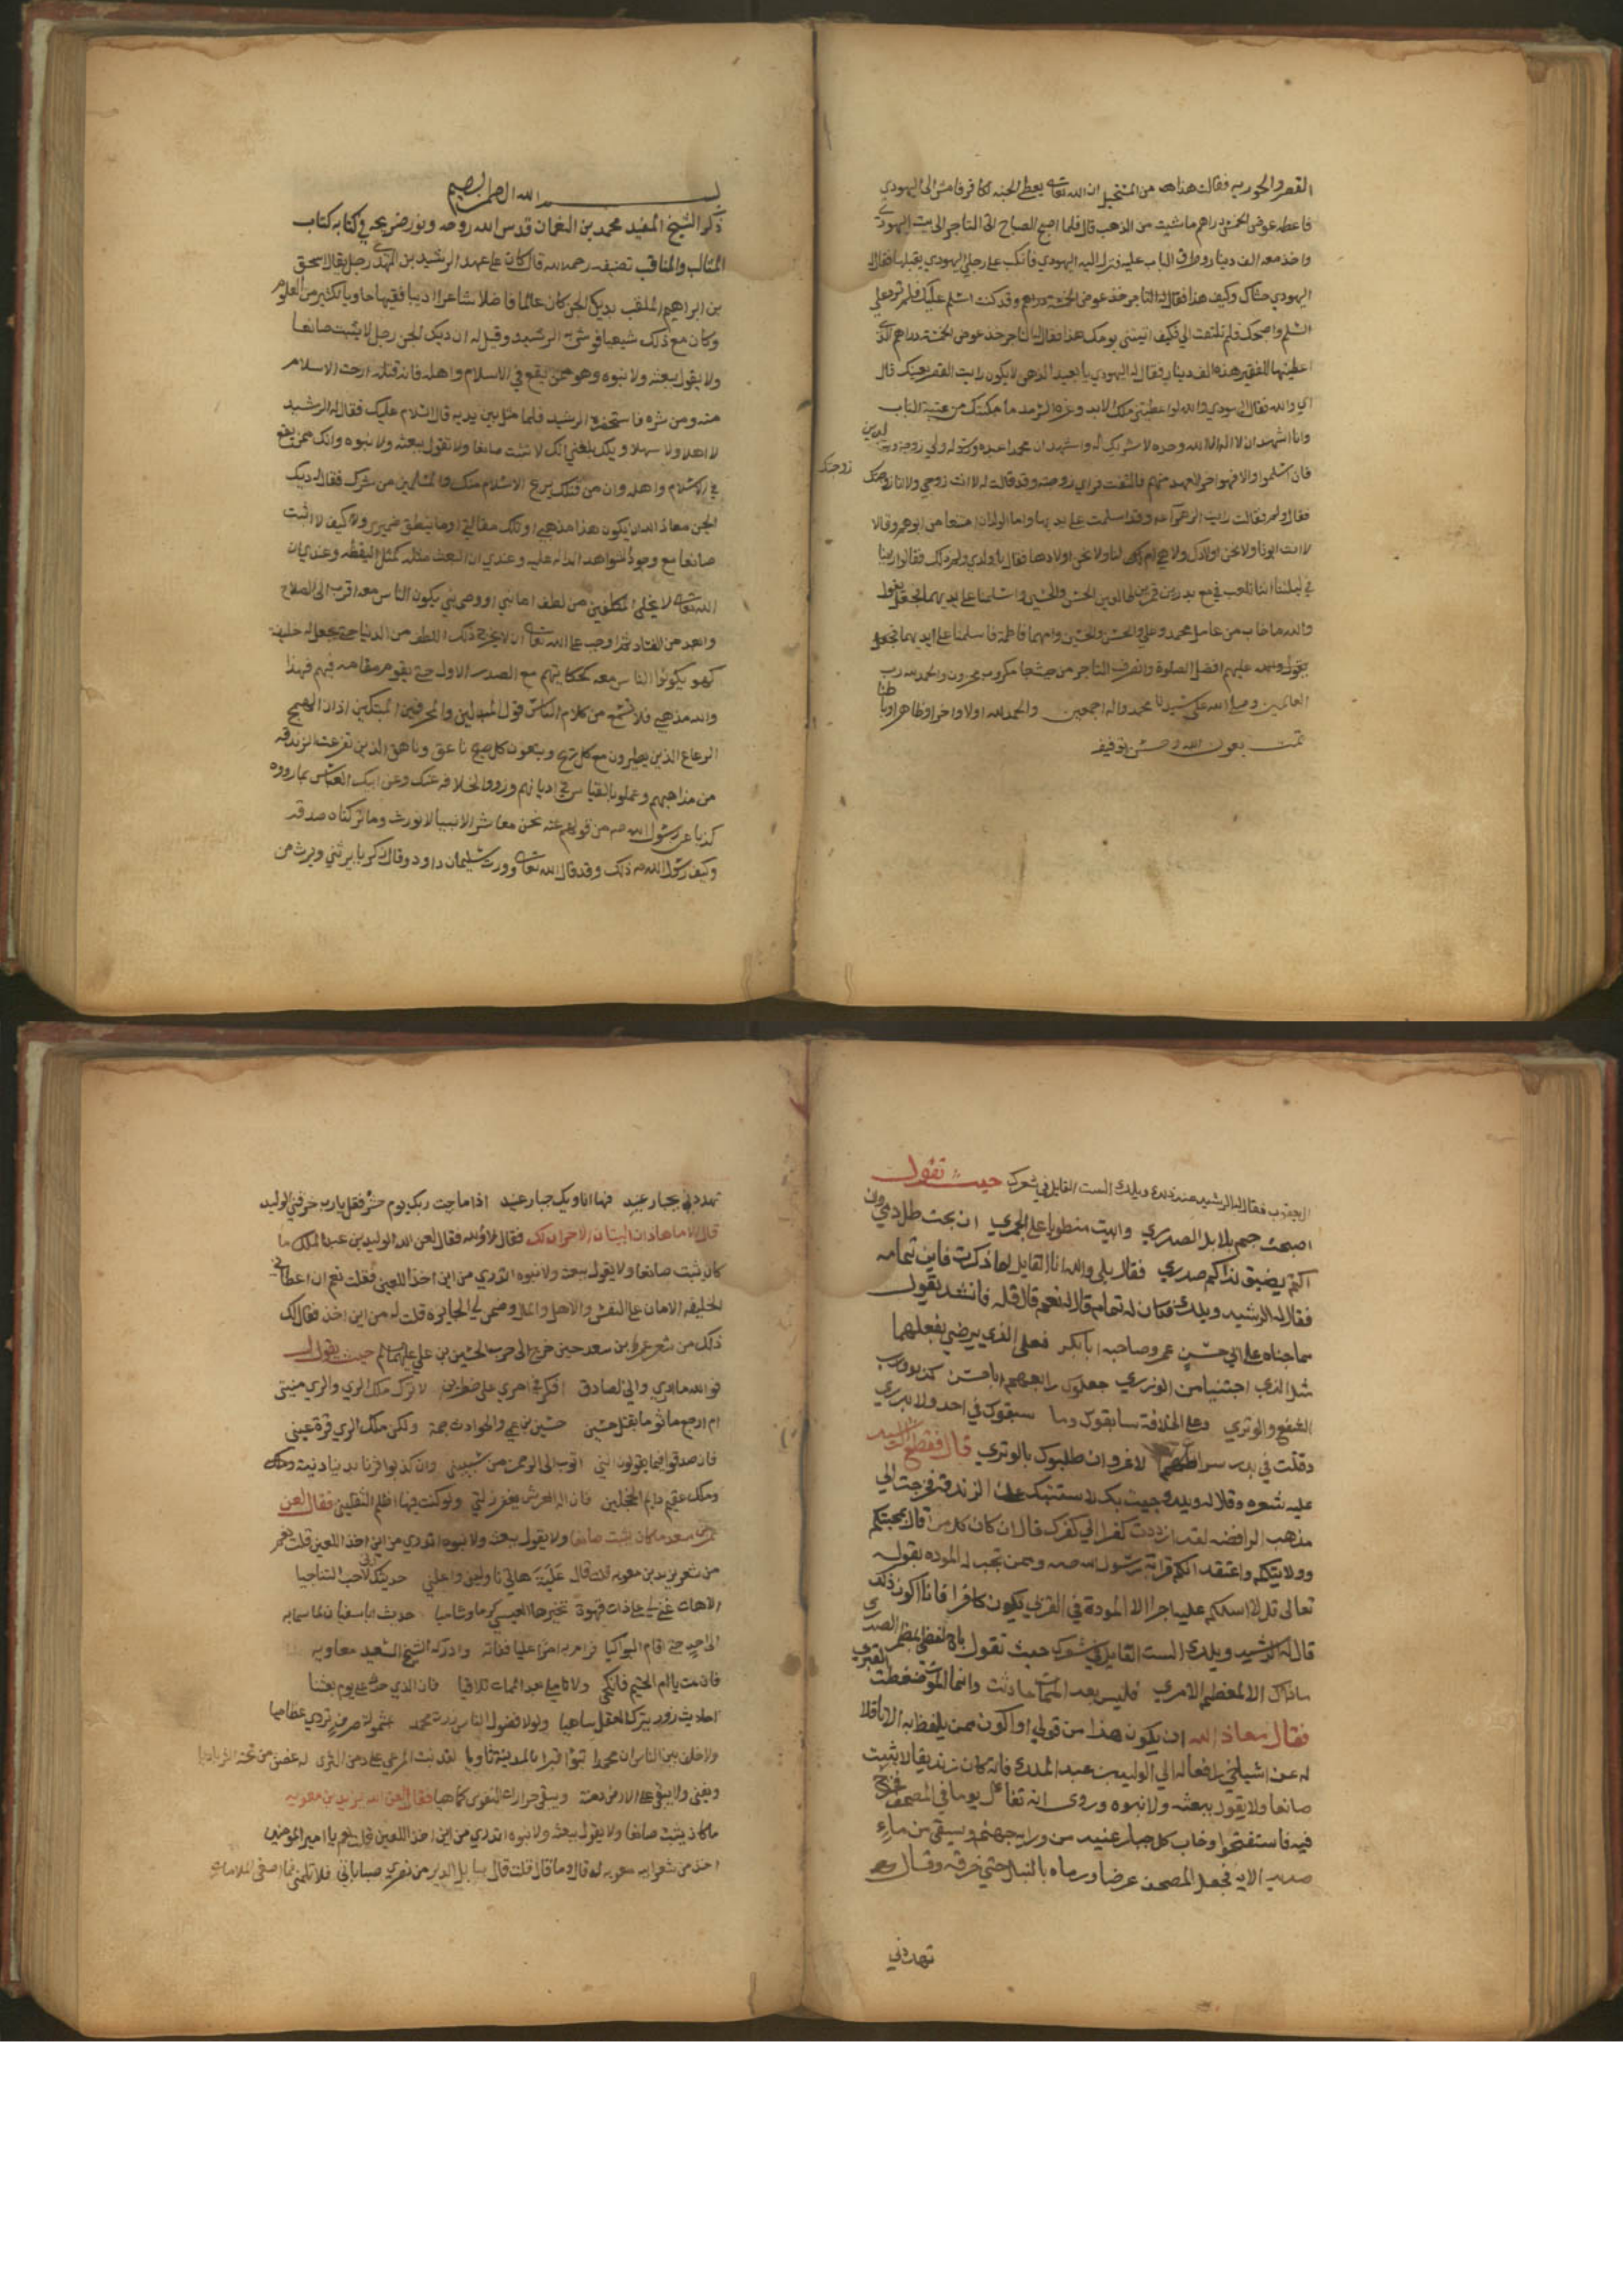 القصر والحوريه فقالت هذا من المستحيل ان الله تعالى يعطي الجنه لكافر فامش الى اليهودي
فاعطه عوض الخمسة دراهم ما شيت من الذهب قال فلما اصبح الصباح اتى التاجر الى بيت اليهودي
واخذ معه الف دينار وطرق الباب عليه فنزل اليه اليهودي فانكب على رجلي اليهودي يقبلها فقال
اليهودي حشاك وكيف هذا فقال له التاجر خذ عوض الخمسة دراهم وقد كنت اسلم عليك فلم ترد علي
السلم واصبحك فلم تلتفت الي فكيف اتيتني يومك هذا فقال له التاجر خذ عوض الخمسة دراهم الذي
اعطيتها للفقير هذه الف دينار فقال له اليهودي يا بعيد الذهن لا يكون رايت القصر بعينك قال
اي والله فقال اليهودي والله لو اعطيتني ملك الابد ما مكنتك من عتبة الباب
وانا اشهد ان لا اله الا الله وحده لا شريك له واشهد ان محمدا عبده ورسوله ولي زوجة وولدين
فان اسلموا والا فهو اخر العهد منهم فالتفت فراى زوجته وقد قالت له لا انت زوجي ولا انا زوجتك
زوجتك
فقال ولم فقالت رايت الزهراء وقد اسلمت على يديها واما الولدان امتنعا من ابوهم وقالا
لا انت ابونا ولا نحن اولادك ولا هي ام لنا ولا نحن اولادها فقال يا ولدي ولم ذلك فقالوا راينا
في ليلتنا اننا نلعب مع بدرين قمرين الحسن والحسين واسلمنا على ايديهما فجعل يقول
والله ما خاب من عامل محمد وعلي والحسن والحسين وامهما فاطمة فاسلمنا على ايديهما فجعل
يقول عليهم افضل الصلوة وانصرف التاجر من حيث جا مكروب محزون والحمد لله رب
العالمين وصلى الله على سيدنا محمد واله اجمعين والحمد لله اولا واخرا وظاهرا وباطنا
تمت بعون الله وحسن توفيقه
بسم الله الرحمن الرحيم
ذكر الشيخ المفيد محمد بن النعمان قدس الله روحه ونور ضريحه في كتابه كتاب
المثالب والمناقب تصنيفه رحمه الله قال كان على عهد الرشيد بن المهدي رجل يقال اسحق
بن ابراهيم الملقب بديك الجن كان عالما فاضلا شاعرا اديبا فقيها حاويا لكثير من العلوم
وكان مع ذلك شيعيا فوشي به الى الرشيد وقيل له ان ديك الجن رجل لا يثبت صانعا
ولا يقول ببعثه ولا نبوه وهو ممن يقع في الاسلام واهله فان قتلته ارحت الاسلام
منه ومن شره فاستحضره الرشيد فلما مثل بين يديه قال السلام عليك فقال له الرشيد
لا اهلا ولا سهلا ويلك بلغني انك لا تثبت صانعا ولا تقول ببعثه ولا نبوه وانك ممن يقع
في الاسلام واهله وان من قتلك يريح الاسلام منك والمسلمين من شرك فقال ديك
الجن معاذ الله ان يكون هذا مذهبي او تلك مقالتي او ما ينطق ضميري وكيف لا اثبت
صانعا مع وجود الشواهد الداله عليه وعندي ان البعث مثله كمثل اليقظه وعندي ان
الله تعالى لا يخلي المكلفين من لطف اما نبي او وصي نبي يكون الناس معه اقرب الى الصلاح
وابعد من الفساد ثم اوجب على الله تعالى ان لا يخرج ذلك اللطف من الدنيا حتى يجعل له خليفة
كهو يكونوا الناس معه كحكايتهم مع الصدر الاول حتى يقوم مقامه فيهم فهذا
والله مذهبي فلا تسمع من كلام الناس قول المبدلين والمحرفين المبتكين اذان الهمج
الرعاع الذين يطيرون مع كل ريح ويتبعون كل ناعق وناهق الذين تفرعت الزندقه
من مذاهبهم وعملوا بالقياس في اديانهم وزووا الخلافه عنك وعن ابيك العباس بما رووه
كذبا عن رسول الله من قولهم عنه نحن معاشر الانبيا لا نورث وما تركناه صدقه
وكيف رسول الله ذلك وقد قال الله تعالى وورث سليمان داود وقال زكريا يرثني ويرث من
ال يعقوب فقال له الرشيد عند ذلك ويلك الست القايل في شعرك حيث تقول
اصبحت جم بلابل الصدري وابيت منطويا على الجمري ان بحت طل دمي وان
اكتم يضيق لذاكم صدري فقال بلى والله انا القايل لما ذكرت فاين تمامه
فقال له الرشيد ويلك فكان له تمام قال نعم قال قله فانشد يقول
مما جناه على ابي حسن عمر وصاحبه ابا بكر فعلى الذي يرضى بفعلهما
مثل الذي اجتنيا من الوزري جعلوك رابعهم ابا حسن كذبوا ورب
الشفع والوتري وعلى الخلافة سابقوك وما سبقوك في احد ولا بدري
وقلت في بدر لا غرو ان طلبوك بالوتري قال فقطع الرشيد
عليه شعره وقال له ويلك جيت بك لاستتيبك على الزندقه فخرجت الى
مذهب الرافضه لقد ازددت كفرا الى كفرك قال ان كان كل من قال بمحبتكم
وولايتكم واعتقد انكم قرابة رسول الله وممن تجب له الموده بقوله
تعالى قل لا اسلكم عليه اجرا الا المودة في القربى يكون كافرا فانا اكون ذلك
قال له الرشيد ويلك الست القايل في شعرك حيث تقول
ماذاك الا لمعظم الامري فليس بعد الممات حادث وانما الموت ضغطت القبري
فقال معاذ الله ان يكون هذا من قولي او اكون ممن يلفظ به الا ناقلا
له عن اشياخي رافعا له الى الوليد بن عبد الملك فانه كان زنديقا لا يثبت
صانعا ولا يقول ببعثه ولا نبوه وروى انه تفاءل يوما في المصحف فخرج
فيه فاستفتحوا وخاب كل جبار عنيد من ورايه جهنم ويسقى من ماء
صديد الايه فجعل المصحف عرضا ورماه بالنبال حتى خرقه وقال
تهددني
تهددني بجبار عنيد فها انا ويك جبار عنيد اذا ما جيت ربك يوم حشر فقل يا رب خرقني الوليد
قال لا ما هاذان البيتان الاخران لك فقال لا والله فقال لعن الله الوليد بن عبد الملك ما
كان يثبت صانعا ولا يقول ببعثه ولا نبوه اتدري من اين اخذ اللعين فقلت نعم ان اعطاني
الخليفه الامان على النفس والاهل والمال وضمن لي الجايزه قلت له من اين اخذ فقال لك
ذلك من شعر عمر بن سعد حين خرج الى حرب الحسين بن علي عليهما السلم حيث يقول
فوالله ما ادري واني لصادق افكر في امري على خطرين لاترك ملك الري والري منيتي
ام ارجع ماثوما بقتل حسين حسين بن عمي والحوادث جمة ولكن ملك الري قرة عيني
فان صدقوا فيما يقولون انني اتوب الى الرحمن من وان كذبوا فزنا بدنيا دنية
وملك عقيم دايم الحجلين فان اله العرش يغفر زلتي ولو كنت فيها اظلم الثقلين فقال لعن
عمر بن سعد ما كان يثبت صانعا ولا يقول ببعثه ولا نبوه اتدري من اين اخذ اللعين قلت نعم
من شعر يزيد بن معويه قال علية هاتي ناوليني واعلني حديثك لا احب التناجيا
حديث ابا سفيان لما سما به
الى احد حتى اقام البواكيا
فان مت يا ام الحتيم فانكحي ولا تاملي بعد الممات تلاقيا فان الذي حدثت عن يوم بعثنا
احاديث زور يترك العقل ساهيا ولولا فضول الناس زرت محمد بمشمولة صرف تروي عظاميا
ولا خلف بين الناس ان محمدا تبوا قبرا بالمدينة ثاويا لقد نبت المرعى على دمن الثرى
ويفنى ولا يبقى على الارض دمنة ويبقى حزازات النفوس كما هيا فقال لعن الله يزيد بن معويه
ما كان يثبت صانعا ولا يقول ببعثه ولا نبوه اتدري من اين اخذ اللعين قلت نعم يا امير المومنين
اخذ من شعر ابيه معويه له قال وما قال قلت قال